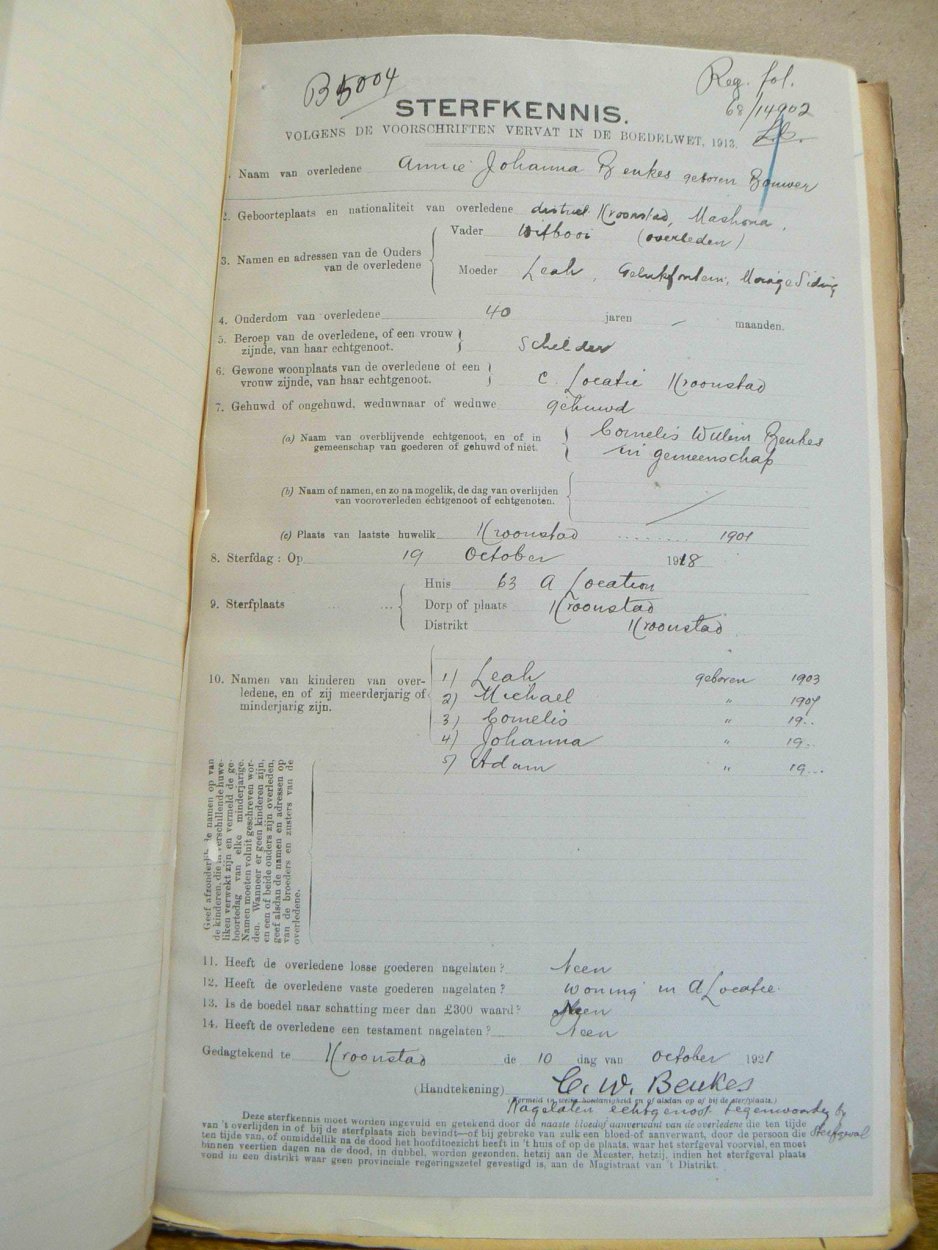 B5004
Reg. fol.
68/14902
STERFKENNIS.
VOLGENS DE VOORSCHRIFTEN VERVAT IN DE BOEDELWET, 1913.
1. Naam van overledene Annie Johanna Beukes geboren Bouwer
2. Geboorteplaats en nationaliteit van overledene distrikt Kroonstad, Mashona,
3. Namen en adressen van de Ouders van de overledene
Vader Witbooi (overleden)
Moeder Leah, Gelukfontein, Siding
4. Ouderdom van overledene 40 jaren — maanden.
5. Beroep van de overledene, of een vrouw
zijnde, van haar echtgenoot. Schelder
6. Gewone woonplaats van de overledene of een
vrouw zijnde, van haar echtgenoot. C. Locatie Kroonstad
7. Gehuwd of ongehuwd, weduwnaar of weduwe gehuwd
(a) Naam van overblijvende echtgenoot, en of in
gemeenschap van goederen of gehuwd of niet.
Cornelis Willem Beukes
in gemeenschap
(b) Naam of namen, en zo na mogelik, de dag van overlijden
van vooroverleden echtgenoot of echtgenoten.
(c) Plaats van laatste huwelik Kroonstad 1901
8. Sterfdag: Op 19 October 1918
9. Sterfplaats
Huis 63 A Location
Dorp of plaats Kroonstad
Distrikt Kroonstad
10. Namen van kinderen van over-
ledene, en of zij meerderjarig of
minderjarig zijn.
1) Leah geboren 1903
2) Michael " 1907
3) Cornelis " 19..
4) Johanna " 19..
5) Adam " 19...
Geef afzonderlik de namen op van
de kinderen, die in verschillende huwe-
liken verwekt zijn en vermeld de ge-
boortedag van elke minderjarige.
Namen moeten voluit geschreven wor-
den. Wanneer er geen kinderen zijn,
en een of beide ouders zijn overleden,
geef alsdan de namen en adressen op
van de broeders en zusters van de
overledene.
11. Heeft de overledene losse goederen nagelaten? Neen
12. Heeft de overledene vaste goederen nagelaten? Woning in A Locatie.
13. Is de boedel naar schatting meer dan £300 waard? Neen
14. Heeft de overledene een testament nagelaten? Neen
Gedagtekend te Kroonstad de 10 dag van October 1921
(Handtekening) C. W. Beukes
(Vermeld in welke hoedanigheid en of alsdan op of bij de sterfplaats.)
Nagelaten echtgenoot tegenwoordig by
sterfgeval
Deze sterfkennis moet worden ingevuld en getekend door de naaste bloedof aanverwant van de overledene die ten tijde
van 's overlijden in of bij de sterfplaats zich bevindt—of bij gebreke van zulk een bloed-of aanverwant, door de persoon die
ten tijde van, of onmiddellik na de dood het hoofdtoezicht heeft in 't huis of op de plaats, waar het sterfgeval voorviel, en moet
binnen veertien dagen na de dood, in dubbel, worden gezonden, hetzij aan de Meester, hetzij, indien het sterfgeval plaats
vond in een distrikt waar geen provinciale regeringszetel gevestigd is, aan de Magistraat van 't Distrikt.